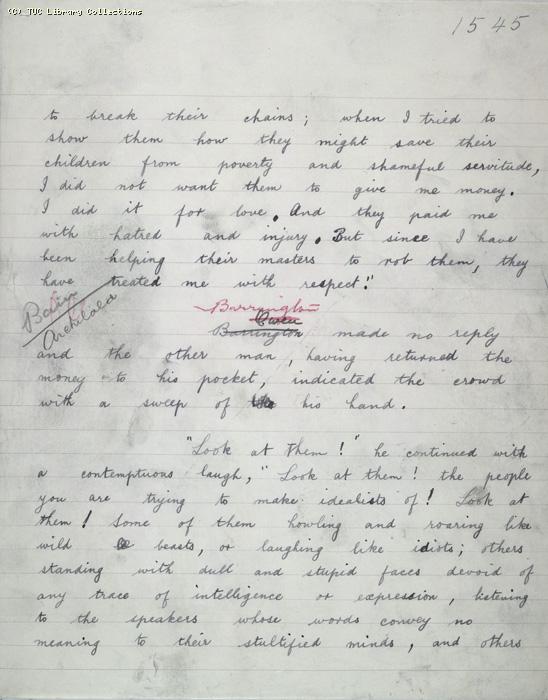 (C) TUC Library Collections
1545
to break their chains; when I tried to
show them how they might save their
children from poverty and shameful servitude,
I did not want them to give me money.
I did it for love. And they paid me
with hatred and injury. But since I have
been helping their masters to rob them, they
have treated me with respect."
Archibald
Barrington
Owen
Barrington made no reply
and the other man, having returned the
money to his pocket, indicated the crowd
with a sweep of his hand.
"Look at them!" he continued with
a contemptuous laugh, "Look at them! the people
you are trying to make idealists of! Look at
them! Some of them howling and roaring like
wild beasts, or laughing like idiots; others
standing with dull and stupid faces devoid of
any trace of intelligence or expression, listening
to the speakers whose words convey no
meaning to their stultified minds, and others